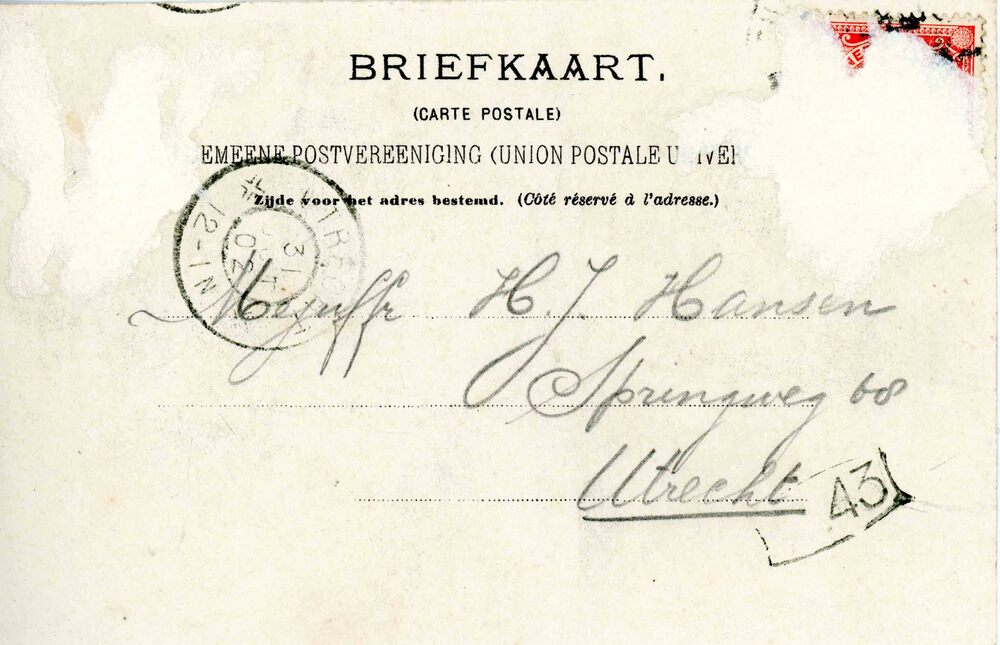 BRIEFKAART.
(CARTE POSTALE)
EMEENE POSTVEREENIGING (UNION POSTALE U IVER
Zijde voor het adres bestemd. (Côté réservé à l'adresse.)
12-1N
31
02
Mejuffr H. J. Hansen
Springweg 68
Utrecht
43